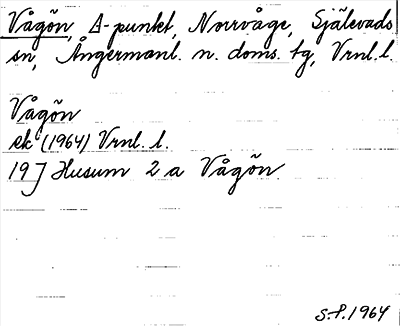 Vågön, Δ-punkt, Norrvåge, Själevads
sn, Ångermanl. n. doms. tg, Vrnl. l.
Vågön
ek (1964) Vrnl. l.
19 J Husum 2 a Vågön.
S.P. 1964